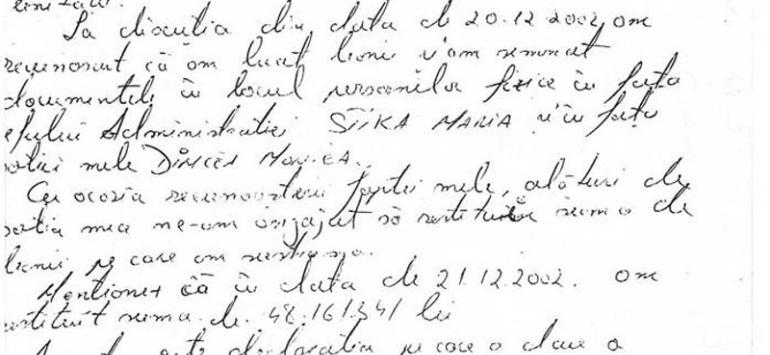 La discuția din data de 20.12.2002 am
recunoscut că am luat banii și am semnat
documentele în locul persoanelor fizice în fața
șefului Administrației SIIKA MARIA și în fața
soției mele DÎNCEA MONICA.
Cu ocazia recunoașterii faptei mele, alături de
soția mea ne-am angajat să restituim suma de
banii pe care am
Menționez că în data de 21.12.2002. am
restituit suma de 48.161.341 lei
declarația pe care o dau a